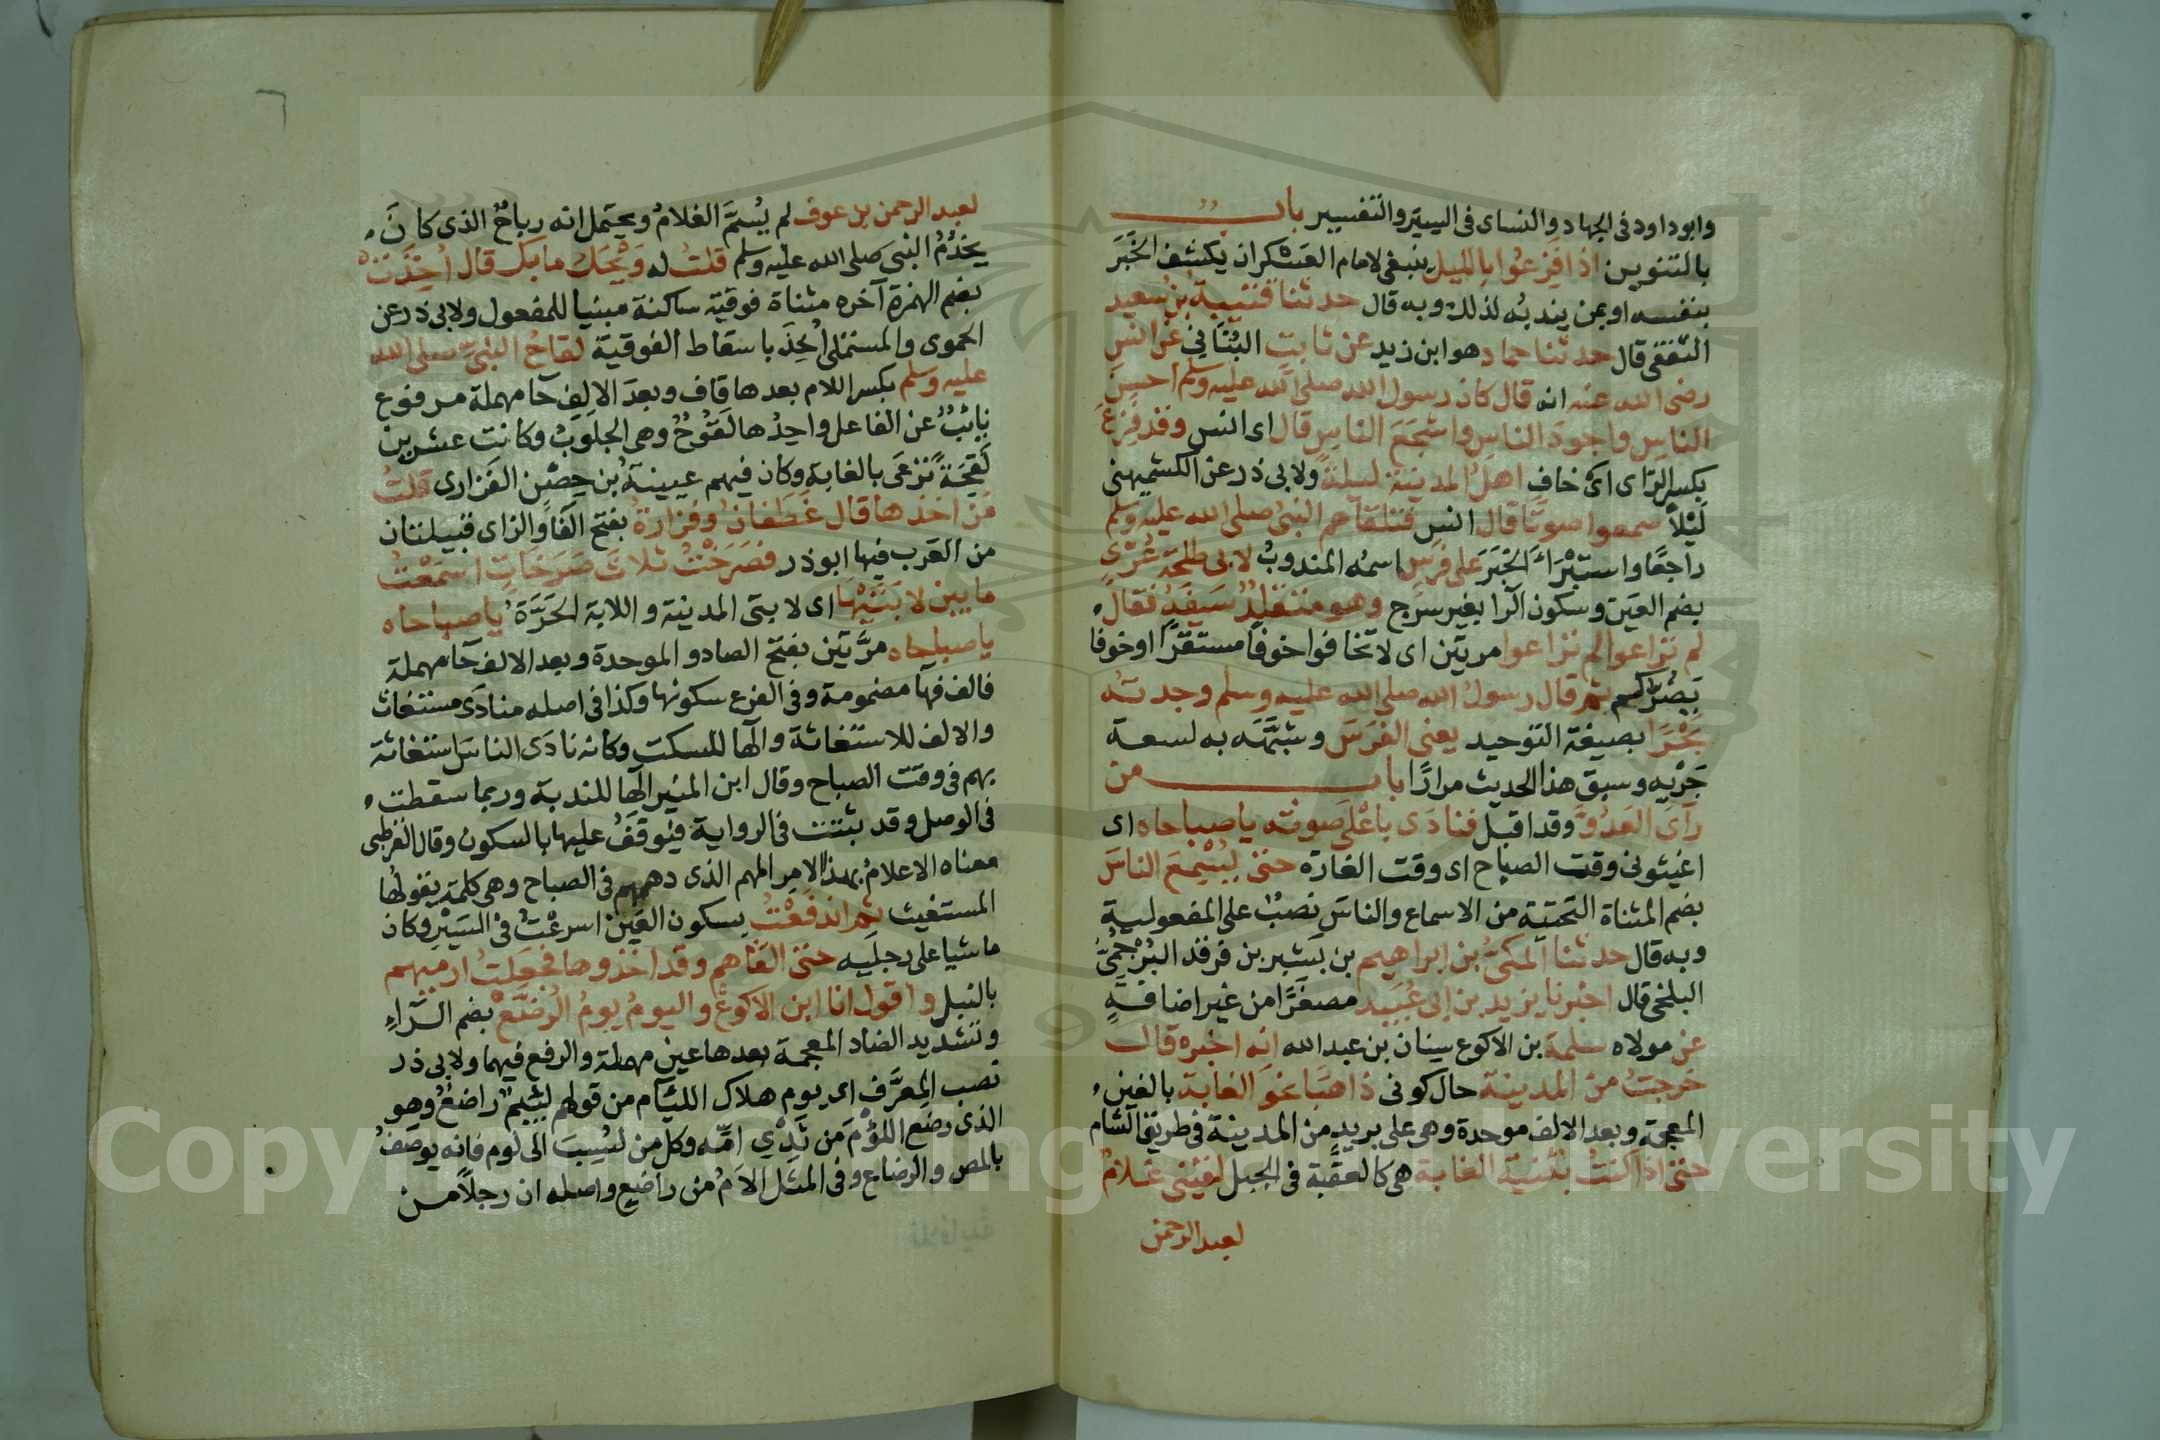 وابوداود فى الجهاد والنساى فى السير والتفسير باب
بالتنوين اذا فزعوا بالليل ينبغى لامام العسكر ان يكشف الخبر
بنفسه او بمن يندبه لذلك وبه قال حدثنا قتيبة بن سعيد
الثقفى قال حدثنا حماد هو ابن زيد عن ثابت البنانى عن انس
رضى الله عنه انه قال كان رسول الله صلى الله عليه وسلم احسن
الناس واجود الناس واشجع الناس قال اى انس وقد فزع
بكسر الزاى اى خاف اهل المدينة ليلة ولابى ذر عن الكشميهنى
ليلاً سمعوا صوتا قال انس فتلقاهم النبى صلى الله عليه وسلم
راجعا واستبراء الخبر على فرس اسمه المندوب لابى طلحة عرى
بضم العين وسكون الرا بغير سرج وهو متقلد سيفه فقال
لم تراعوا لم تراعوا مرتين اى لا تخافوا خوفا مستقرا او خوفا
يضركم ثم قال رسول الله صلى الله عليه وسلم وجدته
بحرا بصيغة التوحيد يعنى الفرس وشبهه به لسعة
جريه وسبق هذا الحديث مرارا باب من
رآى العدو وقد اقبل فنادى باعلى صوته يا صباحاه اى
اغيثونى وقت الصباح اى وقت الغارة حتى يسمع الناس
بضم المثناة التحتية من الاسماع والناس نصب على المفعولية
وبه قال حدثنا المكى بن ابراهيم بن بشير بن فرقد البرجمى
البلخى قال اخبرنا يزيد بن ابى عبيد مصغرا من غير اضافة
عن مولاه سلمة بن الاكوع سنان بن عبد الله انه اخبره قال
خرجت من المدينة حال كونى ذاهبا نحو الغابة بالغين
المعجمة وبعد الالف موحدة وهى على بريد من المدينة فى طريق الشام
حتى اذا كنت بثنية الغابة هى كالعقبة فى الجبل لقينى غلام
لعبد الرحمن
لعبد الرحمن بن عوف لم يُسمَّ الغلام ويحتمل انه رباح الذى كان
يخدم النبى صلى الله عليه وسلم قلت له ويحك ما بك قال اخذت
بضم الهمزة آخره مثناة فوقية ساكنة مبنيا للمفعول ولابى ذر عن
الحموى والمستملى اُخِذَ باسقاط الفوقية لقاح النبى صلى الله
عليه وسلم بكسر اللام بعدها قاف وبعد الالف حا مهملة مرفوع
نائب عن الفاعل واحدها لقوح وهى الحلوب وكانت عشرين
لقحة ترعى بالغابة وكان فيهم عيينة بن حصن الفزارى قلت
من اخذها قال غطفان وفزارة بفتح الفا والزاى قبيلتان
من العرب فيها ابو ذر فصرخت ثلاث صرخات اسمعت
ما بين لابتيها اى لابتى المدينة واللابة الحرة يا صباحاه
يا صباحاه مرتين بفتح الصاد والموحدة وبعد الالف حا مهملة
فالف فها مضمومة وفى الفرع سكونها وكذا فى اصله منادى مستغاث
والالف للاستغاثة والها للسكت وكانه نادى الناس استغاثة
بهم فى وقت الصباح وقال ابن المنير الها للندبة وربما سقطت
فى الوصل وقد ثبتت فى الرواية فيوقف عليها بالسكون وقال القرطبى
معناه الاعلام بهذا الامر المهم الذى دهمهم فى الصباح وهى كلمة يقولها
المستغيث ثم اندفعت بسكون العين اسرعت فى السير وكان
ماشيا على رجليه حتى القاهم وقد اخذوها فجعلت ارميهم
بالنبل واقول انا ابن الاكوع واليوم يوم الرضع بضم الراء
وتشديد الضاد المعجمة بعدها عين مهملة والرفع فيهما ولابى ذر
نصب المعرف اى يوم هلاك اللئام من قولهم لئيم راضع وهو
الذى رضع اللؤم من ثدى امه وكل من نسب الى لوم فانه يوصف
بالمص والرضاع وفى المثل الام من راضع واصله ان رجلا من
Copyright © King Saud University